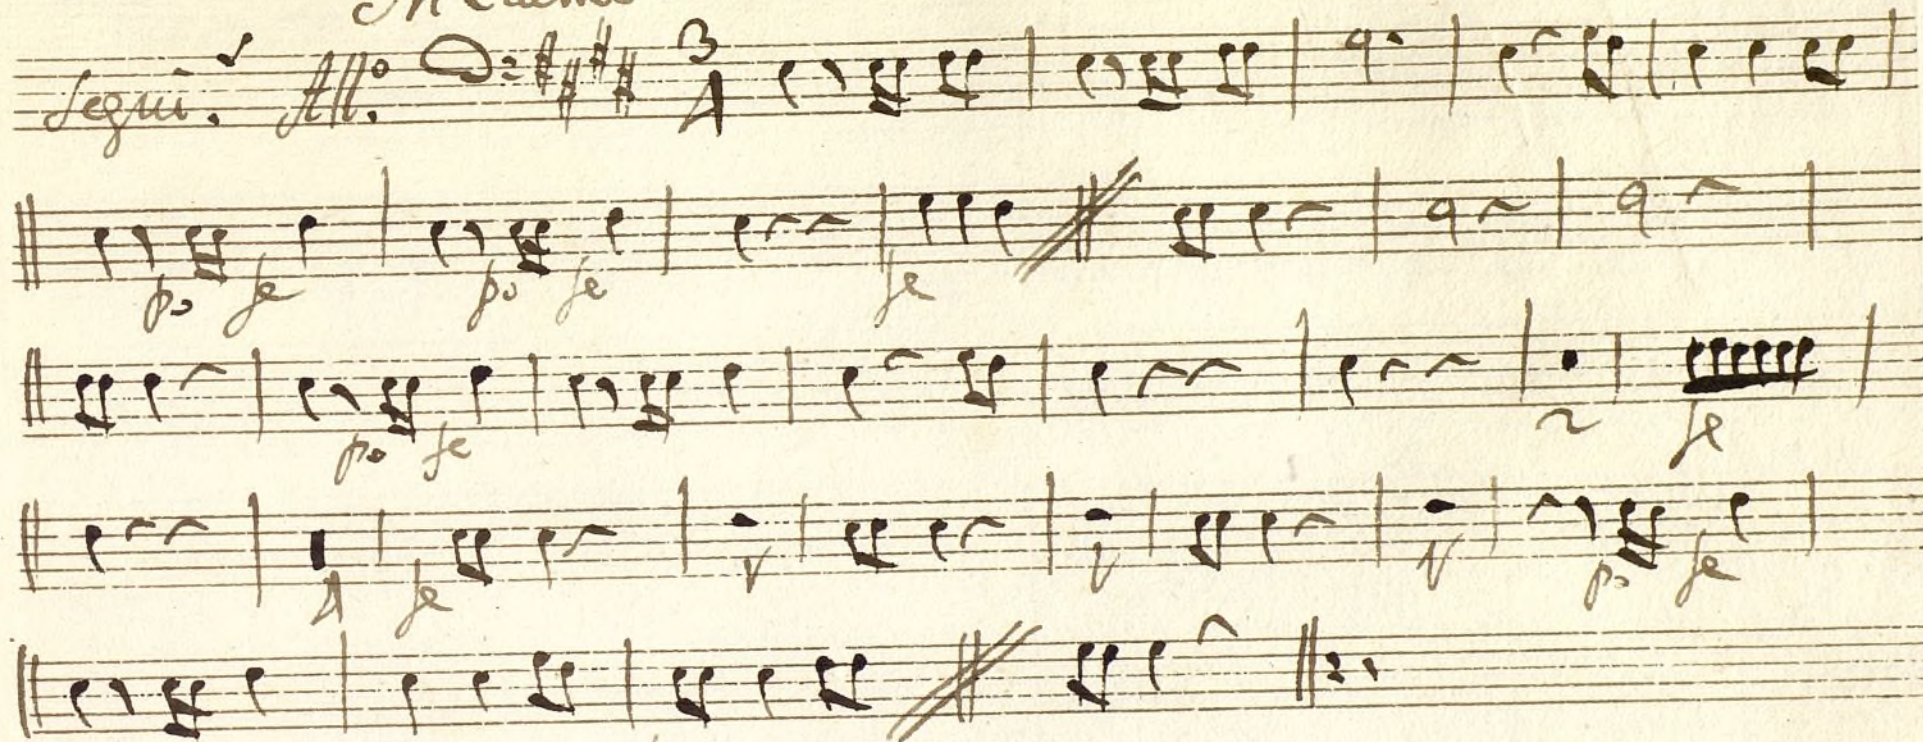 Segui. All.º 3 4
po fe po fe fe
po fe 2 fe
4 fe po fe